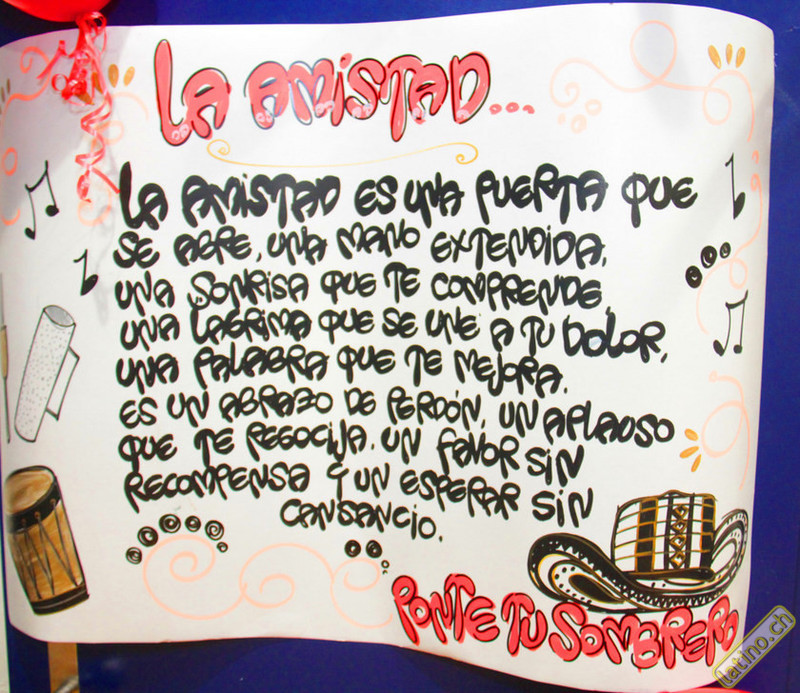 LA AMISTAD...
LA AMISTAD ES UNA PUERTA QUE
SE ABRE, UNA MANO EXTENDIDA,
UNA SONRISA QUE TE COMPRENDE,
UNA LAGRIMA QUE SE UNE A TU DOLOR,
UNA PALABRA QUE TE MEJORA.
ES UN ABRAZO DE PERDÓN, UN APLAUSO
QUE TE REGOCIJA. UN FAVOR SIN
RECOMPENSA Y UN ESPERAR SIN
CANSANCIO.
PONTE TU SOMBRERO
latino.ch